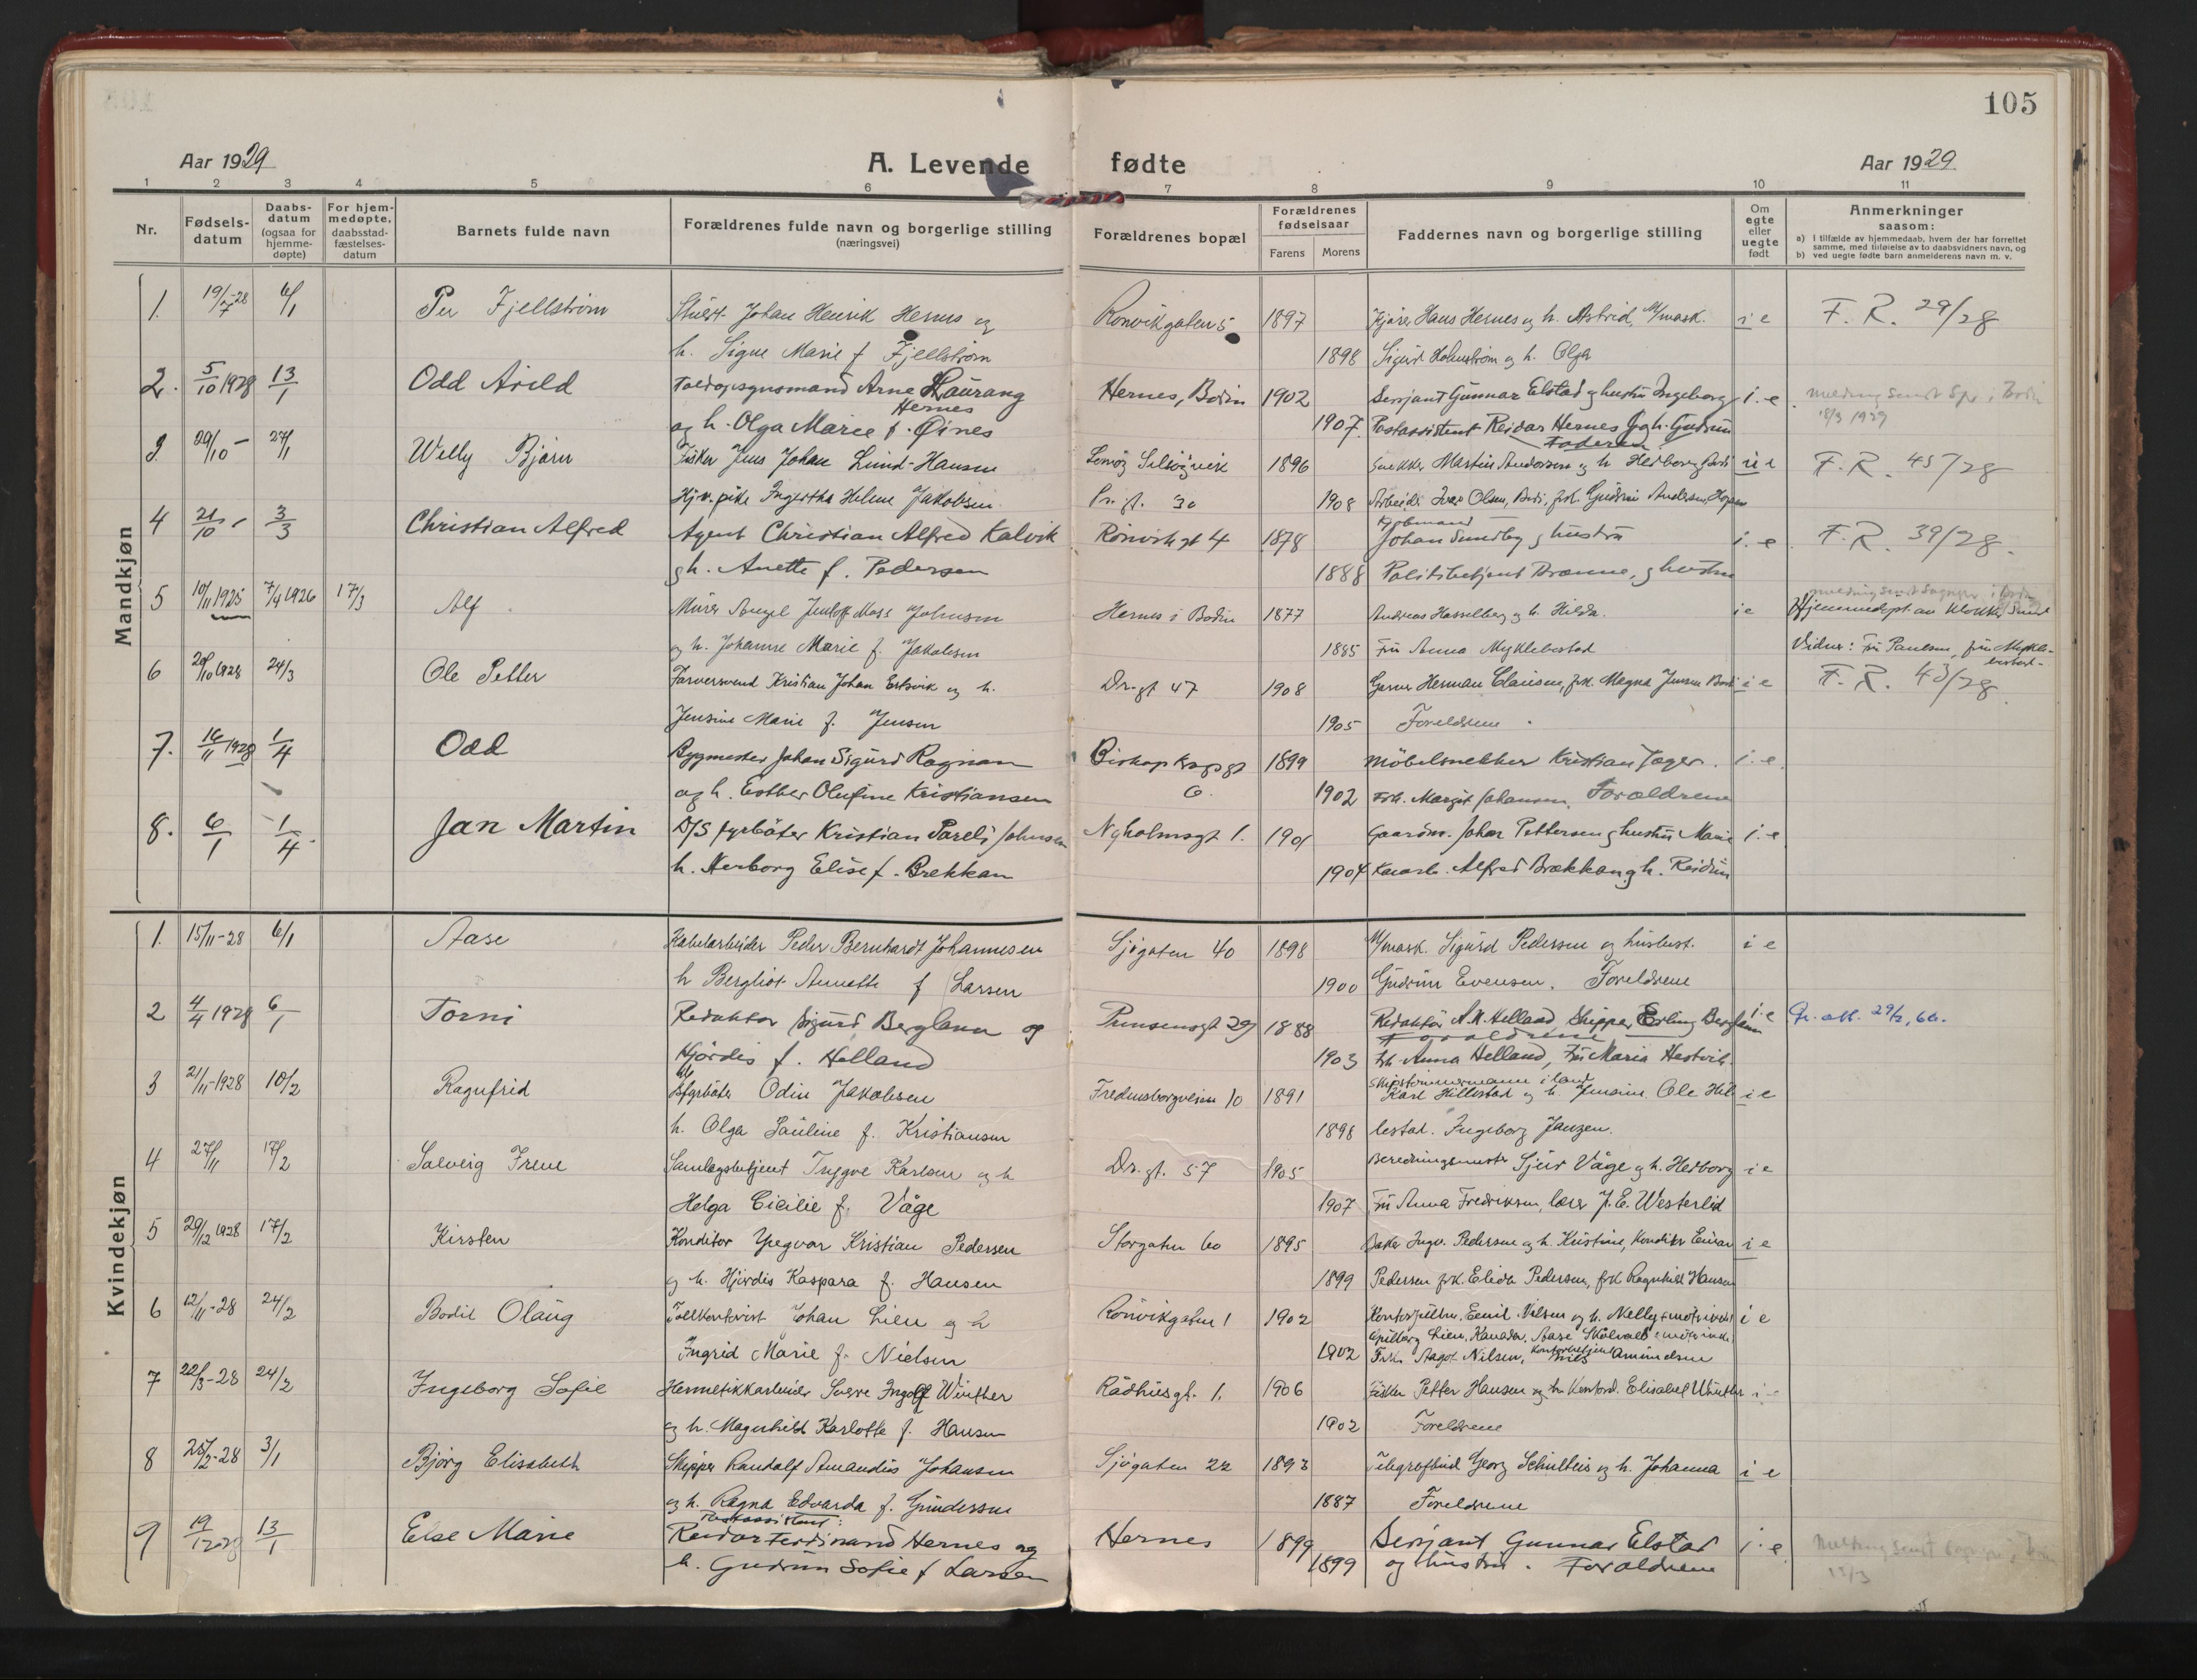 105
Aar 1929
A. Levende fødte
Aar 1929
1 2 3 4 5 6 7 8 9 10 11
Nr.
Fødsels-datum
Daabs-datum (ogsaa for hjemme-døpte)
For hjem-medøpte, daabsstad-fæstelses-datum
Barnets fulde navn
Forældrenes fulde navn og borgerlige stilling (næringsvei)
Forældrenes bopæl
Forældrenes fødselsaar
Farens Morens
Faddernes navn og borgerlige stilling
Om egte eller uegte født
Anmerkninger saasom:
a) I tilfælde av hjemmedaab, hvem der har forrettet samme, med tilføielse av to daabsvidners navn, og
b) ved uegte fødte barn anmelderens navn m. v.
Mandkjøn
1. 19/7-28 6/1 Per Fjellstrøm Johan Henrik Hernes og Rønvikgaten 5 1897 Hans Hernes og h. Astrid, i e F. R. 29/28
h. Signe Marie f Fjellstrøm 1898 Sigurd Holmstrøm og h. Olga
2. 5/10 1928 13/1 Odd Arild Arne Haurang Hernes, Bodin 1902 Sersjant Gunnar Elstad og hustru Ingeborg i. e melding sendt Spr. i Bodin
Hernes
og h. Olga Marie f. Øines 1907. Postassistent Reidar Hernes og h. Gudrun 18/3 1929
Faderen
3. 29/10 - 27/1 Willy Bjørn Fisker Jens Johan Lund-Hansen 1896 Martin Andersen og h. Herborg u e F. R. 45/28
Hj.v. pike Helene Jakobsen Pr. gt. 30 1908 Arbeider Ivar Olsen, Bodø, frk. Gudrun Andersen,
4 21/10 - 3/3 Christian Alfred Agent Christian Alfred Kalvik Rønvikgt 4 1878 Kjøbmand Johan Sundby og hustru i. e F. R. 39/28.
og h. Anette f. Pedersen 1888 Politibetjent Brænne, og hustru
5 10/11 1925 7/4 1926 17/3 Alf Murer Johnsen Hernes i Bodin 1877 Andreas Hasselberg og h. Hilda. i e Hjemmedøpt av klokker Sund
og h. Johanne Marie f. Jakobsen 1885 Fru Anna Myklebostad Vidner: Fru Paulsen, fru Mykle-bostad.
6 20/10 1928 24/3 Ole Petter Farversvend Kristian Johan og h. Dr. gt 47 1908 Herman Clausen, frk. Magna Jensen Bodø i e F. R. 43/28
Jensine Marie f. Jensen 1905 Foreldrene
7. 16/11 1928 1/4 Odd Bygmester Johan Sigurd Rognan Biskop Krogsgt 1899 Møbelsnekker Kristian Jæger. i. e.
og h. Esther Olufine Kristiansen 6. 1902 Frk. Margit Johansen, Forældrene
8. 6/1 1/4 Jan Martin D/S fyrbøter Kristian Pareli Johnsen Nyholmsgt 1. 1901 Gaardm. Johan Pettersen og hustru Marie i. e
h. Herborg Elise f. Brekkan 1904 Alfred Brækkan og h. Reidun
Kvindekjøn
1. 15/11-28 6/1 Aase Kabelarbeider Peder Bernhardt Johannesen Sjøgaten 40 1898 M/mask. Sigurd Pedersen og hustru. i e
h Bergliot Annette f Larsen 1900 Gudrun Evensen. Foreldrene
2 4/4 1928 6/1 Torni Redaktør Sigurd Berglann og Prinsensgt 29 1888 Redaktør A. K. Helland, Skipper Erling Berglann i e
Forældrene
Hjørdis f. Helland 1903 Frk. Anna Helland, Fru Maria
3 21/11-1928 10/2 Ragnfrid Fyrbøter Odin Jakobsen Fredensborgveien 10 1891 Karl Hillestad og h. Jensine. Ole Hil- i e
h. Olga Pauline f. Kristiansen 1898 lestad. Ingeborg Janzen.
4 27/11 17/2 Solveig Irene Samlagsbetjent Trygve Karlsen og h Dr. gt. 57 1905 Beredningsmester Sjur Våge og h. Herborg i e
Helga Cicilie f. Våge 1907 Fru Anna Fredriksen, lærer J. E. Westerlid
5 29/12 1928 17/2 Kirsten Konditor Yngvar Kristian Pedersen Storgaten 60 1895 Baker Ingv. Pedersen og h. Kristine, Konditor Einar i e
og h. Hjørdis Kaspara f. Hansen 1899 Pedersen frk. Elida Pedersen, frk Ragnhild Hansen
6 12/11-28 24/2 Bodil Olaug Johan Lien og h Rønvikgaten 1 1902 Emil Nilsen og h. Nelly i e
Lien, Kanada, Aase
Ingrid Marie f. Nielsen 1902 Frk. Aagot Nilsen, Kontorbetjent Nils Amundsen
7 22/3-28 24/2 Ingeborg Sofie Hermetikkarbeider Sverre Ingolf Winther Rådhusgt. 1. 1906 Fisker Petter Hansen og h. Elisabet Winther i -
og h. Magnhild Karlotte f. Hansen 1902 Foreldrene
8 25/2-28 3/1 Bjørg Elisabeth Skipper Randolf Amandus Johansen Sjøgaten 22 1893 Telegrafbud Georg Schulteis og h. Johanna i e
og h. Ragna Edvarda f. Gundersen 1887 Foreldrene
9 19/12028 13/1 Else Marie Postassistent: Hernes 1899 Sersjant Gunnar Elstad i. e
Reidar Ferdinand Hernes og
h. Gudrun Sofie f Larsen 1899 og hustru. Forældrene 13/3